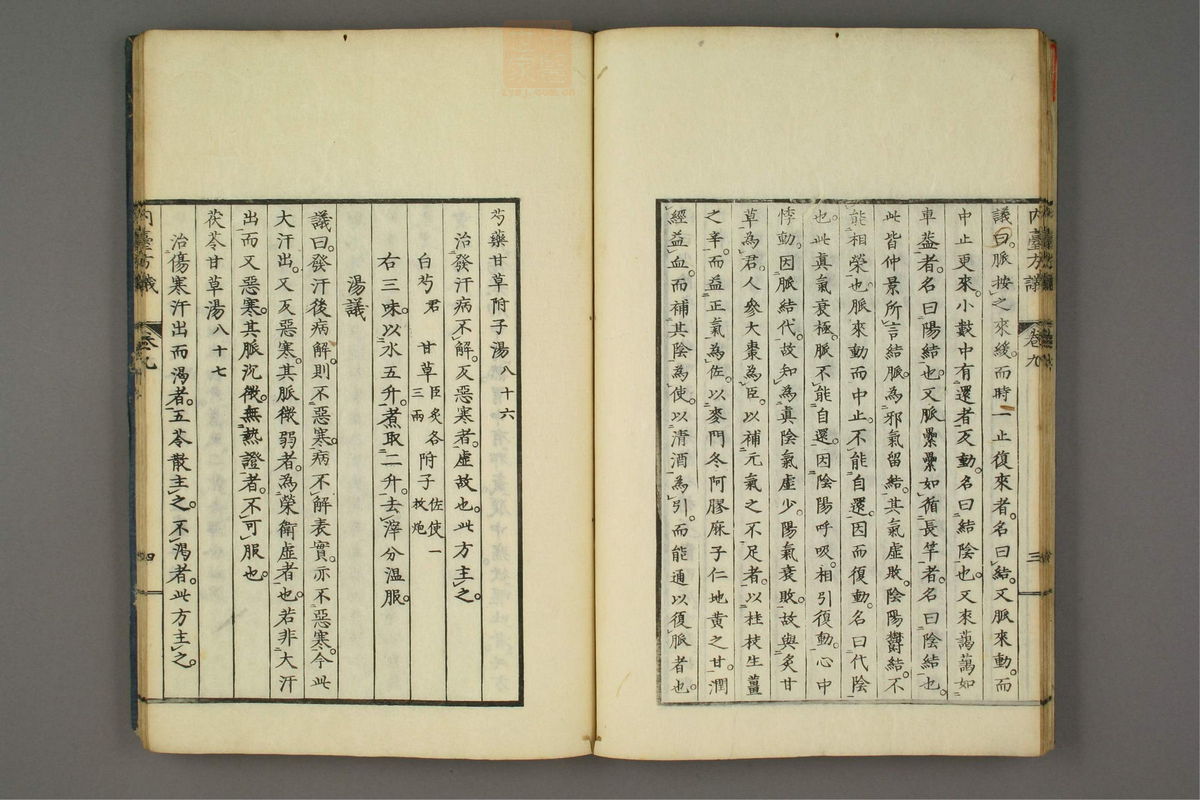 議曰。脈按之來緩。而時一止復來者。名曰結。又脈來動。而
中止更來。小數中有還者反動。名曰結陰也。又來藹藹如
車葢者。名曰陽結也。又脈纍纍如循長竿者。名曰陰結也。
此皆仲景所言結脈。為邪氣留結。其氣虛敗。陰陽欝結。不
能相榮也。脈來動而中止。不能自還。因而復動。名曰代陰
也。此真氣衰極。脈不能自還。因陰陽呼吸。相引復動。心中
悸動。因脈結代。故知為真陰氣虛少。陽氣衰敗。故與炙甘
草為君。人參大棗為臣。以補元氣之不足者。以桂枝生薑
之辛。而益正氣為佐。以麥門冬阿膠麻子仁地黄之甘。潤
經益血。而補其陰為使。以清酒為引。而能通以復脈者也。
內臺方議 卷九 三
芍藥甘草附子湯八十六
治發汗病不解。反惡寒者。虛故也。此方主之。
白芍君 甘草臣炙各三兩 附子佐使一枚炮
右三味。以水五升。煮取二升。去滓分温服。
湯議
議曰。發汗後病解。則不惡寒。病不解表實。亦不惡寒。今此
大汗出。又反惡寒。其脈微弱者。為榮衛虛者也。若非大汗
出而又惡寒。其脈沉微。無熱證者。不可服也。
茯苓甘草湯八十七
治傷寒汗出而渴者。五苓散主之。不渴者。此方主之。
內臺方議 卷九 四